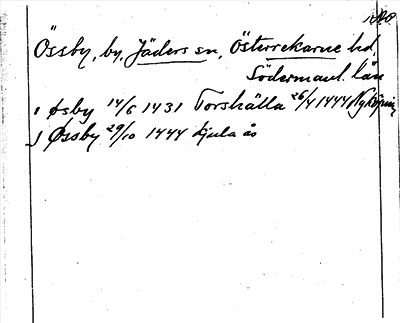 Össby, by, Jäders sn, Österrekarne hd,
Södermanl. län
i øsby 14/6 1431 Torshälla 26/4 1444 Nyköping
j Øssby 29/10 1444 Kjula ås